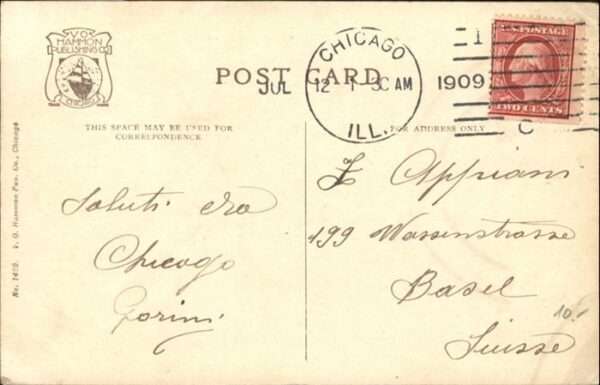 V.O.
HAMMON
PUBLISHING CO.
CHICAGO
POST CARD
CHICAGO
JUL 12 1-30 AM
ILL.
1909
1
C
U.S. POSTAGE
TWO CENTS
THIS SPACE MAY BE USED FOR
CORRESPONDENCE
FOR ADDRESS ONLY
No. 1419. V. O. Hammon Pub. Co., Chicago
Saluti da
Chicago
Gorini
Appiani
199 Wassenstrasse
Basel
Suisse
10.-